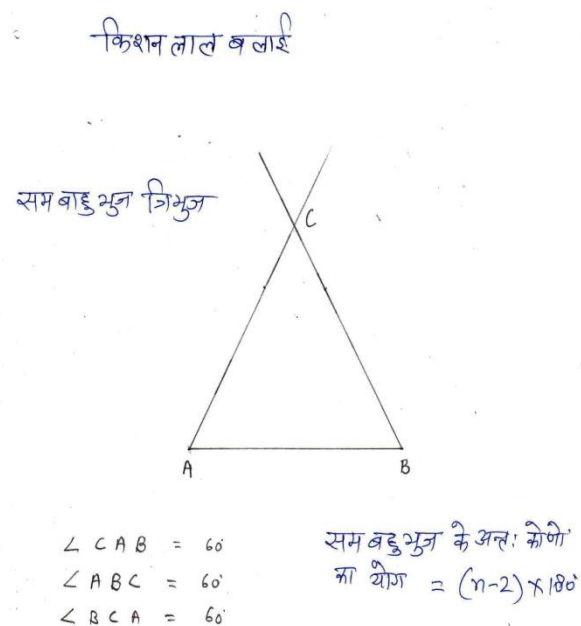 किशन लाल बलाई
सम बाहु भुज त्रिभुज
C
A
B
∠ CAB = 60°
∠ ABC = 60°
∠ BCA = 60°
सम बहुभुज के अन्त: कोणो
का योग = (n-2) × 180°